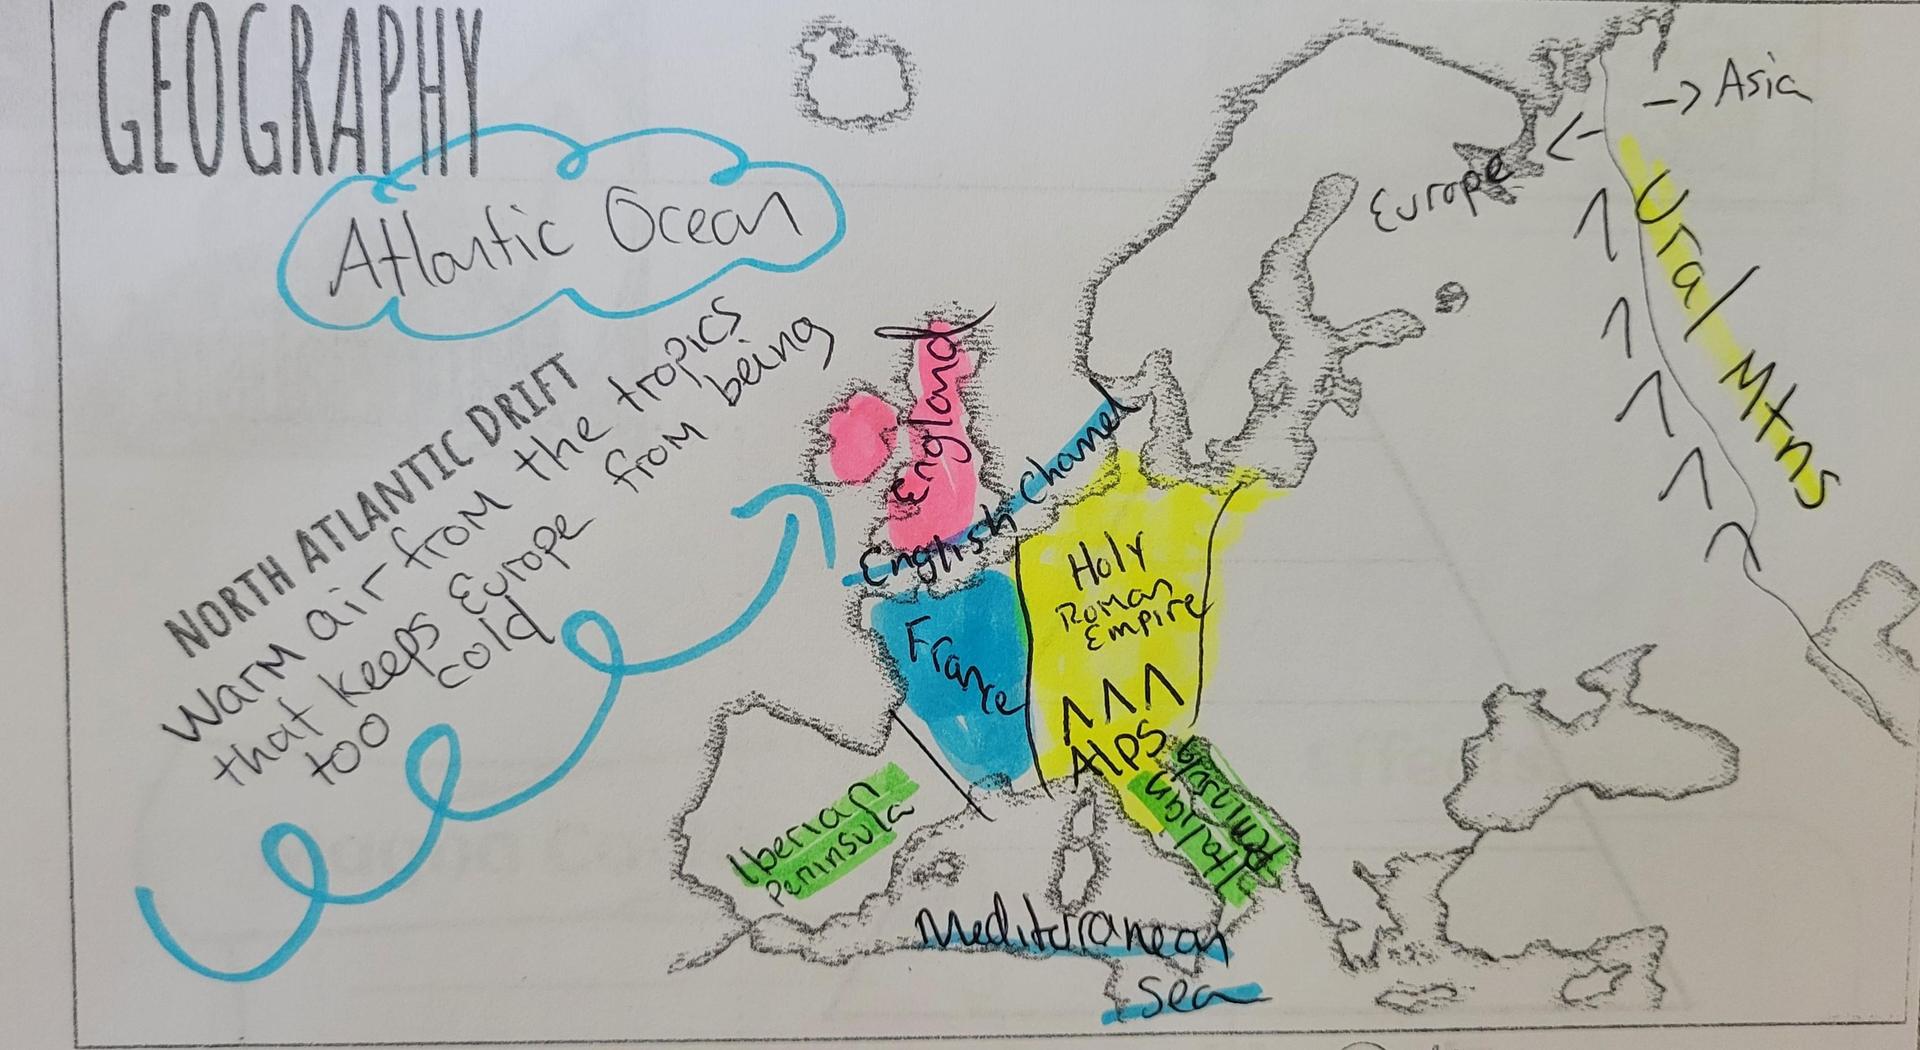 GEOGRAPHY
Atlantic Ocean
NORTH ATLANTIC DRIFT
Warm air from the tropics
that keeps Europe from being
too cold
→ Asia
Europe ←
Ural Mtns
England
English Channel
France
Holy
Roman
Empire
Alps
Iberian
Peninsula
Italian
Peninsula
Mediteranean
Sea